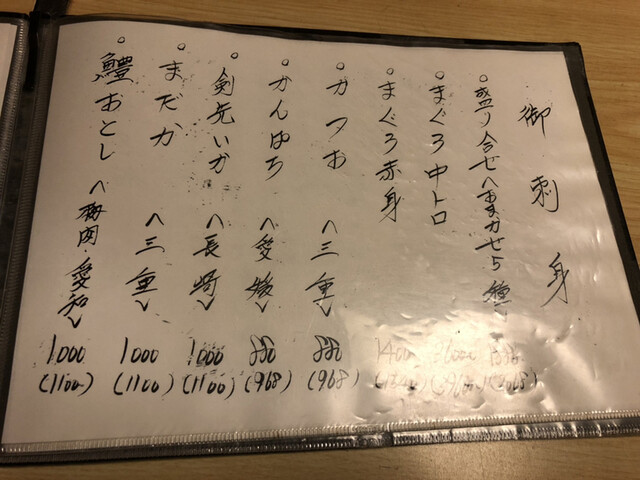 御刺身
盛り合せ〈おまかせ5種〉
まぐろ中トロ
まぐろ赤身 1400
かつお〈三重〉 880 (968)
かんぱち〈愛媛〉 880 (968)
剣先いか〈長崎〉 1000 (1100)
まだか〈三重〉 1000 (1100)
鱧おとし〈梅肉・愛知〉 1000 (1100)